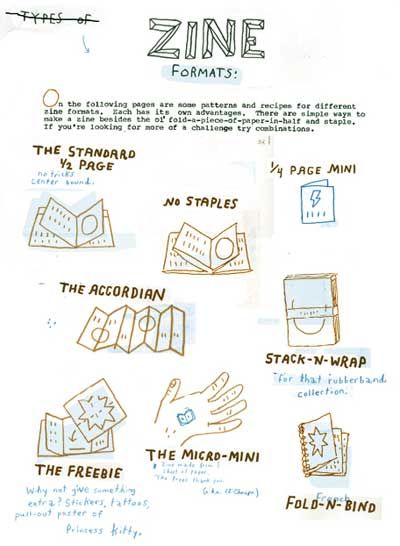 TYPES OF
ZINE
FORMATS:
On the following pages are some patterns and recipes for different
zine formats. Each has its own advantages. There are simple ways to
make a zine besides the ol' fold-a-piece-of-paper-in-half and staple.
If you're looking for more of a challenge try combinations.
THE STANDARD
1/2 PAGE
no tricks
center bound.
NO STAPLES
1/4 PAGE MINI
THE ACCORDIAN
STACK-N-WRAP
"For that rubberband
collection.
THE FREEBIE
Why not give something
extra? Stickers, tattoos,
pull-out poster of
Princess Kitty.
THE MICRO-MINI
Zine made from 1
sheet of paper.
The trees thank you.
French
FOLD-N-BIND